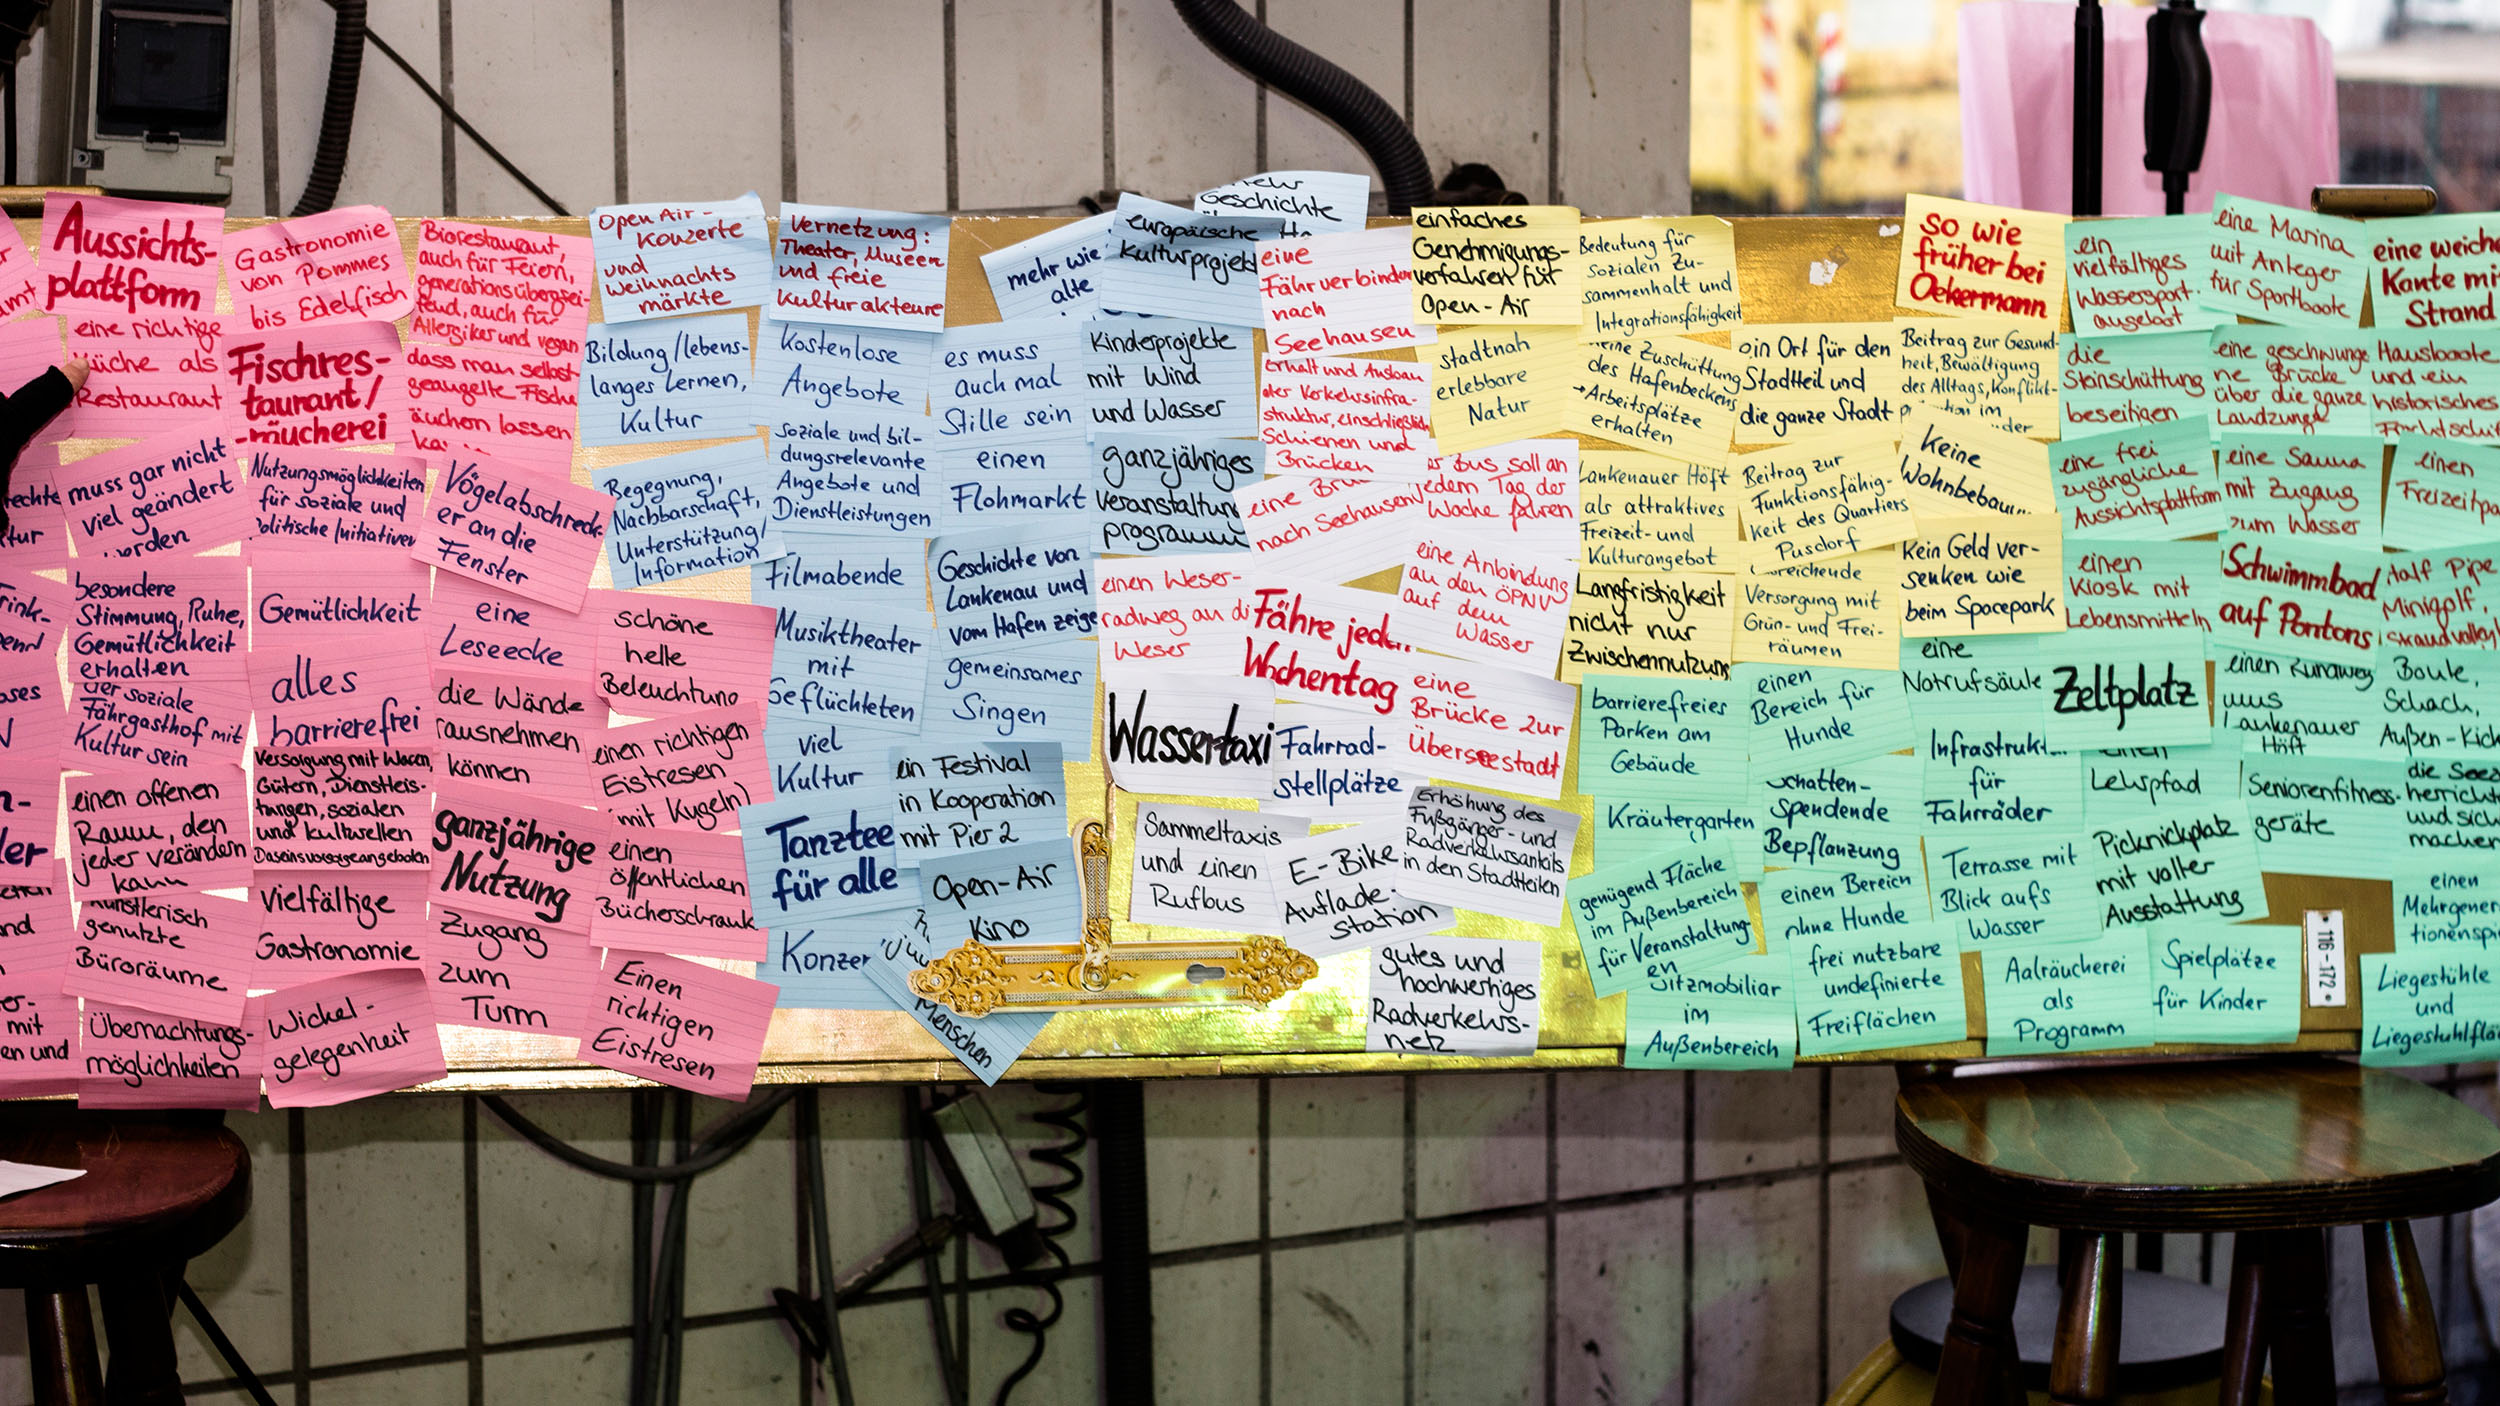 Aussichts-
plattform
eine richtige
Küche als
Restaurant
muss gar nicht
viel geändert
werden
besondere
Stimmung, Ruhe,
Gemütlichkeit
erhalten
der soziale
Fährgasthof mit
Kultur sein
einen offenen
Raum, den
jeder verändern
kann
künstlerisch
genutzte
Büroräume
Übernachtungs-
möglichkeiten
Gastronomie
von Pommes
bis Edelfisch
Fischres-
taurant/
-räucherei
Nutzungsmöglichkeiten
für soziale und
politische Initiativen
Gemütlichkeit
alles
barrierefrei
Versorgung mit Waren,
Gütern, Dienstleis-
tungen, sozialen
und kulturellen
Daseinsvorsorgeangeboten
Vielfältige
Gastronomie
Wickel-
gelegenheit
Biorestaurant,
auch für Feiern,
generationsübergrei-
fend, auch für
Allergiker und vegan
dass man selbst
geangelte Fische
räuchern lassen
Vögelabschreck-
er an die
Fenster
eine
Leseecke
die Wände
rausnehmen
können
ganzjährige
Nutzung
Zugang
zum
Turm
schöne
helle
Beleuchtung
einen richtigen
Eistresen
(mit Kugeln)
einen
öffentlichen
Bücherschrank
Einen
richtigen
Eistresen
Open Air-
Konzerte
und
Weihnachts
märkte
Bildung/lebens-
langes Lernen,
Kultur
Begegnung,
Nachbarschaft,
Unterstützung/
Information
Vernetzung:
Theater, Museen
und freie
Kulturakteure
Kostenlose
Angebote
soziale und bil-
dungsrelevante
Angebote und
Dienstleistungen
Filmabende
Musiktheater
mit
Geflüchteten
viel
Kultur
Tanztee
für alle
Konzer
mehr wie
alte
es muss
auch mal
Stille sein
einen
Flohmarkt
Geschichte von
Lankenau und
vom Hafen zeigen
gemeinsames
Singen
ein Festival
in Kooperation
mit Pier 2
Open-Air
Kino
Menschen
Geschichte
europäische
Kulturprojekt
Kinderprojekte
mit Wind
und Wasser
ganzjähriges
Veranstaltungs
programm
einen Weser-
radweg an die
Weser
Wassertaxi
Sammeltaxis
und einen
Rufbus
eine
Fährverbindung
nach
Seehausen
Erhalt und Ausbau
der Verkehrsinfra-
struktur, einschließlich
Schienen und
Brücken
eine
nach Seehausen
Bus soll an
jedem Tag der
Woche fahren
eine Anbindung
an den ÖPNV
auf dem
Wasser
Fähre jeden
Wochentag
eine
Brücke zur
Überseestadt
Fahrrad-
stellplätze
E-Bike
Auflade-
station
Erhöhung des
Fußgänger- und
Radverkehrsanteils
in den Stadtteilen
gutes und
hochwertiges
Radverkehrs-
netz
einfaches
Genehmigungs-
verfahren für
Open-Air
stadtnah
erlebbare
Natur
Bedeutung für
sozialen Zu-
sammenhalt und
Integrationsfähigkeit
keine Zuschüttung
des Hafenbeckens
→ Arbeitsplätze
erhalten
Lankenauer Höft
als attraktives
Freizeit- und
Kulturangebot
Langfristigkeit
nicht nur
Zwischennutzung
ein Ort für den
Stadtteil und
die ganze Stadt
Beitrag zur
Funktionsfähig-
keit des Quartiers
Pusdorf
Versorgung mit
Grün- und Frei-
räumen
so wie
früher bei
Oekermann
Beitrag zur Gesund-
heit, Bewältigung
des Alltags, Konflikt-
im
keine
Wohnbebauung
kein Geld ver-
senken wie
beim Spacepark
barrierefreies
Parken am
Gebäude
Kräutergarten
genügend Fläche
im Außenbereich
für Veranstaltung-
en
Sitzmobiliar
im
Außenbereich
einen
Bereich für
Hunde
Schatten-
spendende
Bepflanzung
einen Bereich
ohne Hunde
frei nutzbare
undefinierte
Freiflächen
eine
Notrufsäule
Infrastruktur
für
Fahrräder
Terrasse mit
Blick aufs
Wasser
Aalräucherei
als
Programm
ein
vielfältiges
Wassersport-
angebot
die
Steinschüttung
beseitigen
eine frei
zugängliche
Aussichtsplattform
einen
Kiosk mit
Lebensmitteln
Zeltplatz
einen
Lehrpfad
Picknickplatz
mit voller
Ausstattung
Spielplätze
für Kinder
eine Marina
mit Anleger
für Sportboote
eine geschwunge
ne Brücke
über die ganze
Landzunge
eine Sauna
mit Zugang
zum Wasser
Schwimmbad
auf Pontons
einen Rundweg
ums
Lankenauer
Höft
Seniorenfitness-
geräte
116-172
eine weiche
Kante mit
Strand
Hausboote
und ein
historisches
einen
Half Pipe
Minigolf,
Boule,
Schach,
Außen-Kick
die
und sich
machen
einen
Liegestühle
und